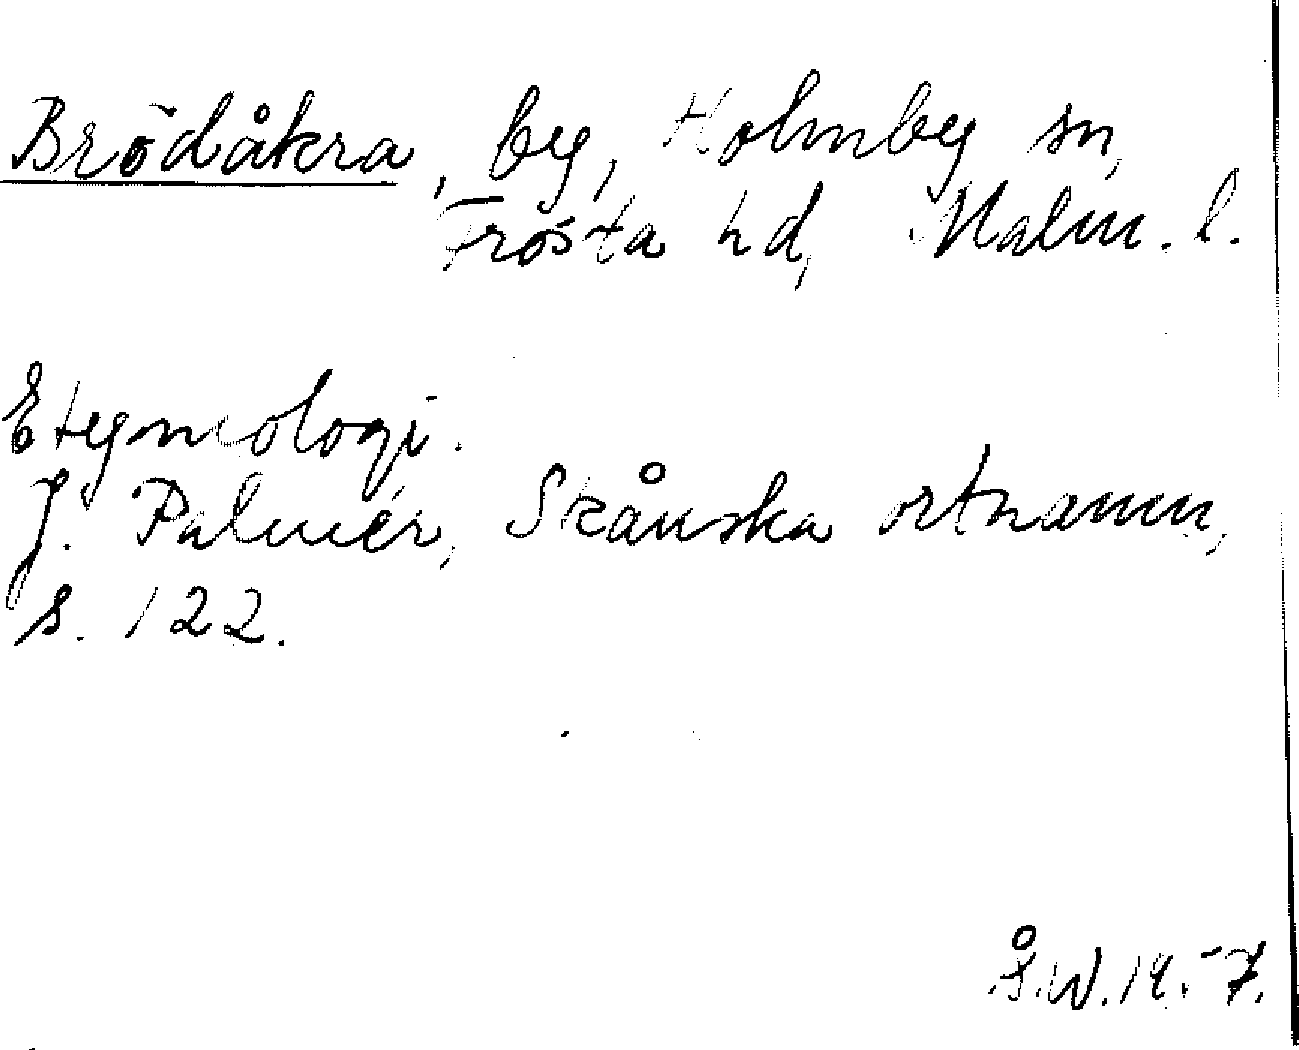 Brödåkra, by, Holmby sn,
Frosta hd, Malm. l.
Etymologi.
J. Palmér, Skånska ortnamn,
s. 122.
Å.W. 1957.